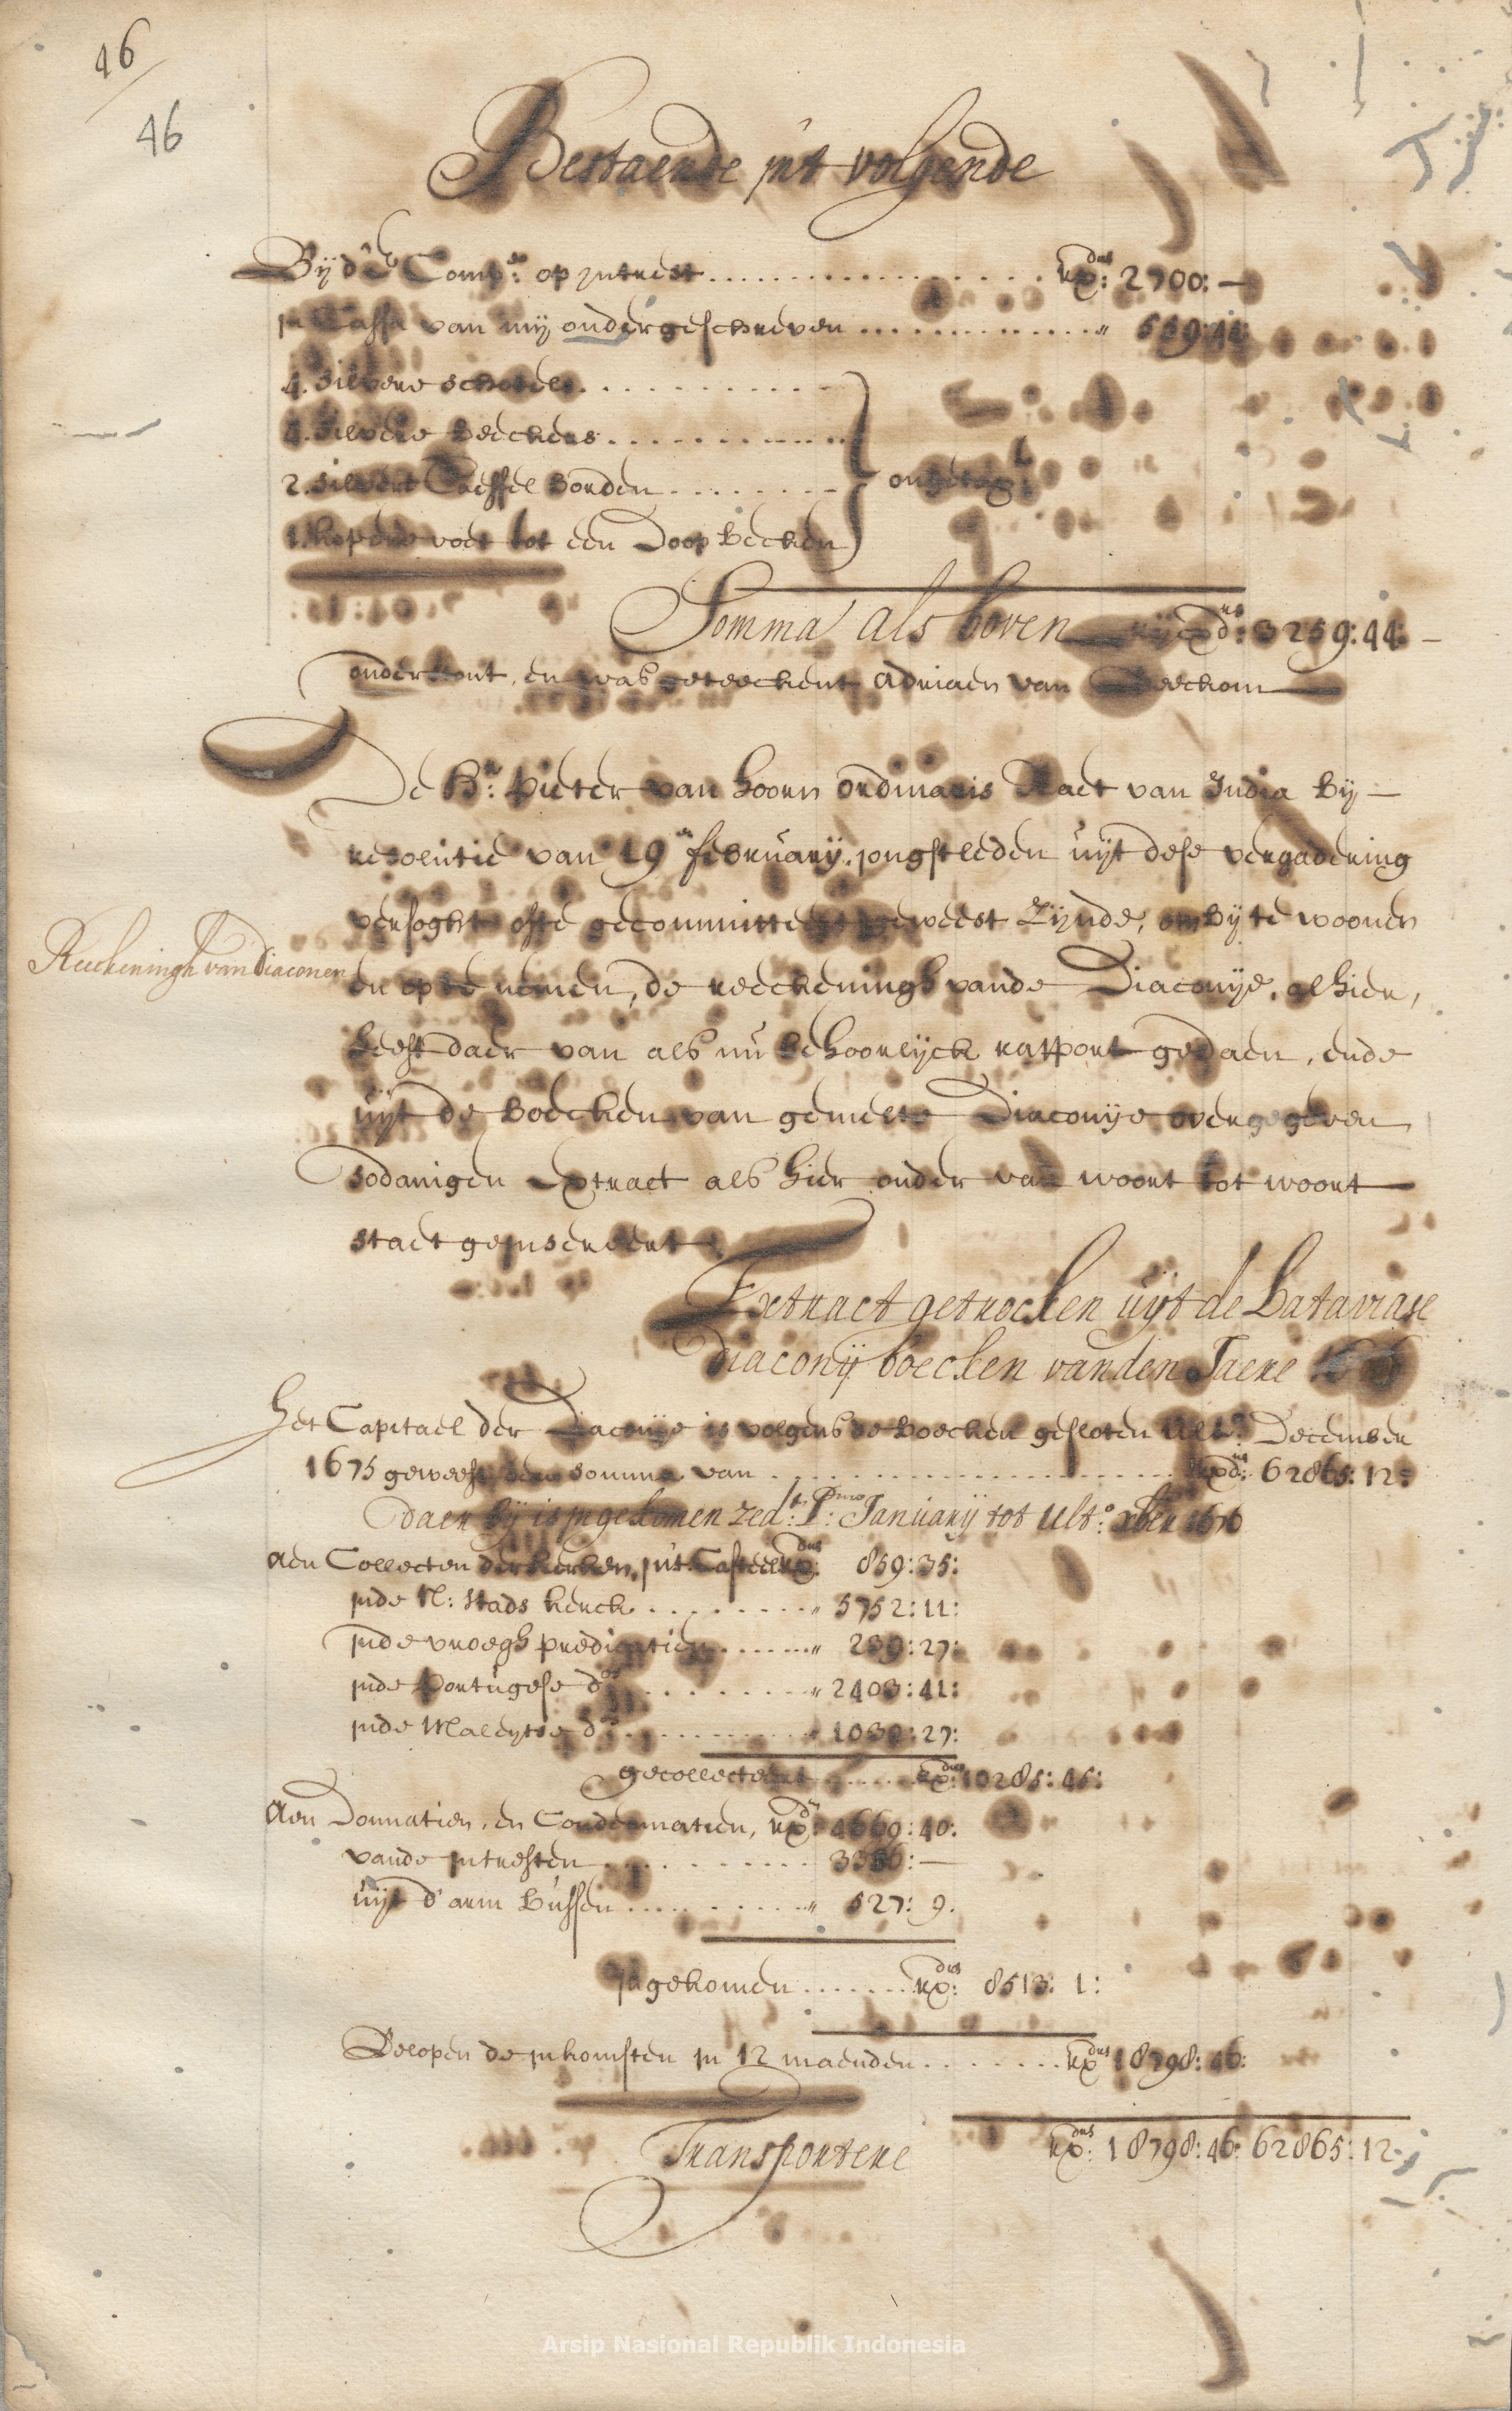 46
46
Bestaende jnt volgende
Bij d' E Comp:e op jntrest Rx:drs 2700:—
jn Cassa van mij ondergeschreven " 559:44:
4. silvere schotels
4. silvere Beeckers
2. silvere Taeffel Borden
ongetax:t
1. kopere voet tot een Doop Becken
Somma als boven Rijcxd:rs 3259:44:—
onderstont, en was geteeckent Adriaen van
De Hr: Pieter van hoorn ordinaris Raet van India Bij
resolutie van 19en february jongstleden uijt dese vergadering
versoght ofte gecommitteert geweest zijnde, om Bij te woonen
Reeckeningh van diaconen
en op te nemen, de reeckeningh vande Diaconije, alhier,
heeft daer van als nu behoorlijck rapport gedaen, ende
uijt de Boecken van gemelte Diaconije overgegeven
sodanigen Extract als hier onder van woort tot woort
staet gejnsereert
Extract getrocken uijt de Bataviase
diaconij boecken vanden Jaere
Het Capitael der Diaconije is volgens de Boecken gesloten Ult:o December
1675 geweest een somma van Rxd:rs 62865:12:
daer bij is jngekomen zed:t P:mo Januarij tot Ult:o xber 1676
Aen Collecten der kercken, jnt Casteel Rx:drs 859:35:
jnde N: Stads kerck " 5752:11:
jnde vroegh predicatien " 239:27:
jnde Portugese d:os " 2403:41:
jnde Maleytse d:o " 1030:27:
gecollecteert Rx:drs 10285:45:
Aen Donnatien, en Condemnatien, Rx:drs 4669:40:
vande jntresten 3316:—
uijt d' arm Bussen " 527:9.
jngekomen Rx:drs 8513:1:
Belopen de jnkomsten jn 12 maenden Rx:drs 18798:46:
Transportere Rx:drs 18798:46: 62865:12.
Arsip Nasional Republik Indonesia